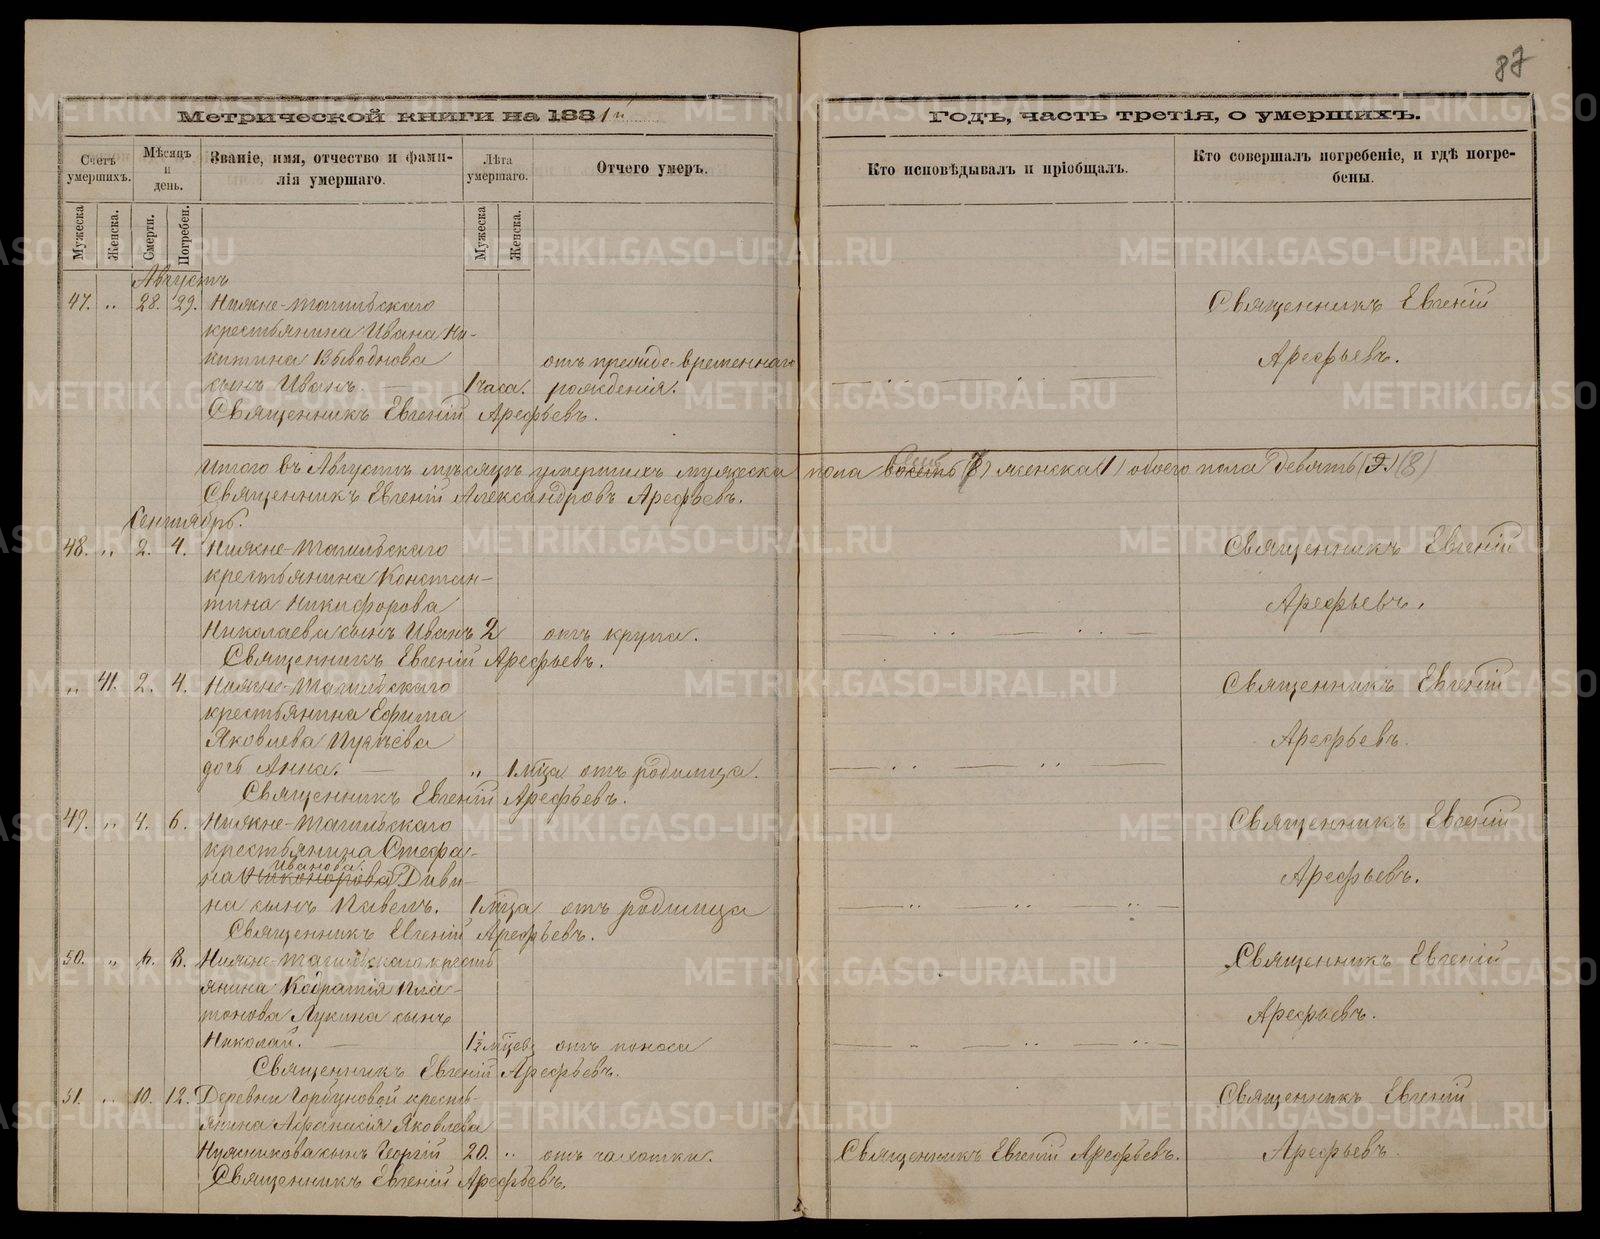 87
Метрической книги на 1881й
Годъ, часть третія, о умершихъ.
Счетъ умершихъ.
Мѣсяцъ и день.
Званіе, имя, отчество и фами-
лія умершаго.
Лѣта умершаго.
Отчего умеръ.
Кто исповѣдывалъ и пріобщалъ.
Кто совершалъ погребеніе, и гдѣ погре-
бены.
Мужеска
Женска.
Смерти.
Погребен.
Мужеска
Женска.
Августъ
47. „ 28. 29. Нижне-Тагильскаго Священникъ Евгеній
крестьянина Ивана Ни-
китина Выводнова отъ преждевременнаго Арефьевъ.
сынъ Иванъ. 1 часа. рожденія.
Священникъ Евгеній Арефьевъ.
Итого въ Августѣ мѣсяцѣ умершихъ мужеска пола восемь (7) женска (1) обоего пола девять (9) (8)
Священникъ Евгеній Александровъ Арефьевъ.
Сентябрь.
48. „ 2. 4. Нижне-Тагильскаго Священникъ Евгеній
крестьянина Констан-
тина Никифорова Арефьевъ.
Николаева сынъ Иванъ 2 отъ крупа.
Священникъ Евгеній Арефьевъ.
„ 41. 2. 4. Нижне-Тагильскаго Священникъ Евгеній
крестьянина Ефима
Яковлева Арефьевъ.
дочь Анна. „ 1 мца отъ родимца.
Священникъ Евгеній Арефьевъ.
49. „ 4. 6. Нижне-Тагильскаго Священникъ Евгеній
крестьянина Стефа-
Иванова
на Никонорова Диви- Арефьевъ.
на сынъ Павелъ. 1 мца отъ родимца
Священникъ Евгеній Арефьевъ.
50. „ 6. 8. Нижне-Тагильскаго кресть Священникъ Евгеній
янина Кодратія Пла-
тонова Лукина сынъ Арефьевъ.
Николай. 1½ мцевъ отъ поноса
Священникъ Евгеній Арефьевъ.
51. „ 10. 12. Деревни Горбуновой кресть- Священникъ Евгеній
янина Афанасія Яковлева
сынъ Георгій 20. „ отъ чахотки. Священникъ Евгеній Арефьевъ. Арефьевъ.
Священникъ Евгеній Арефьевъ.
METRIKI.GASO-URAL.RU